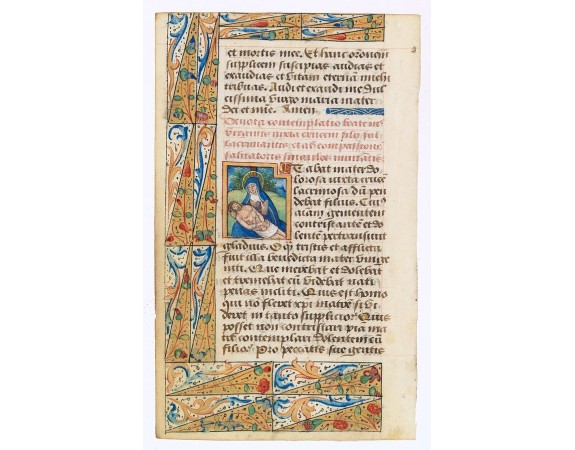 et mortis mee. Et hanc orõnem
supplicem suscipias audias et
exaudias et vitam eternã michi
tribuas. Audi et exaudi me dul
cissima virgo maria mater
dei et mie. Amen.
Devota contemplatio beate
virginis iuxta crucem filij sui
lacrimantis et ad compassionẽ
salvatoris singulos invitãtis
Stabat mater do
lorosa iuxta crucẽ
lacrimosa dũ pen
debat filius. Cuiꝰ
aĩam gementem
contristantẽ et do
lentẽ pertransivit
gladius. O ꝙ tristis et afflicta
fuit illa benedicta mater unige
niti. Que merebat et dolebat
et tremebat cũ videbat nati
penas incliti. Quis est homo
qui nõ fleret xpi matrẽ si vi
deret in tanto supplicio. Quis
posset non contristari pia ma
trẽ contemplari dolentem cũ
filio. Pro peccatis sue gentis